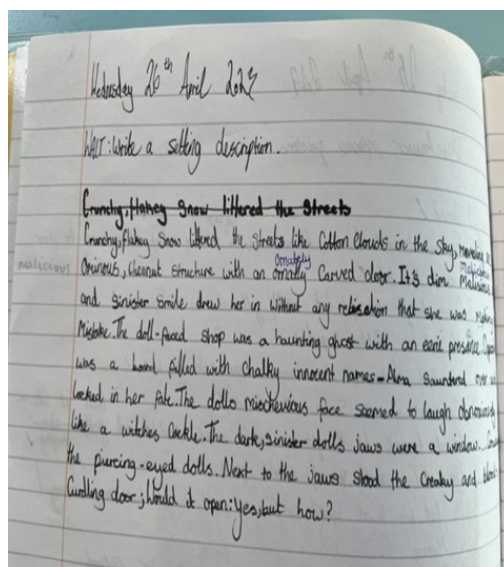 Wednesday 26th April 2023
WALT: Write a setting description.
Crunchy, flakey Snow littered the Streets
Crunchy, flakey Snow littered the streets like Cotton Clouds in the sky,
ornately malicious
malicious Ominous, cheanut structure with an ornatly Carved door. It's dim Malicious,
and sinister Smile drew her in without any relisation that she was making
Mistake. The doll-faced shop was a haunting ghost with an eerie presence.
was a board filled with chalky innocent names - Alma Sauntered over
locked in her fate. The dolls mischevious face seemed to laugh obnoxiously
like a witches Cackle. The dark, sinister dolls jaws were a window.
the piurcing-eyed dolls. Next to the jaws stood the Creaky and
Curdling door; Would it open: Yes, but how?